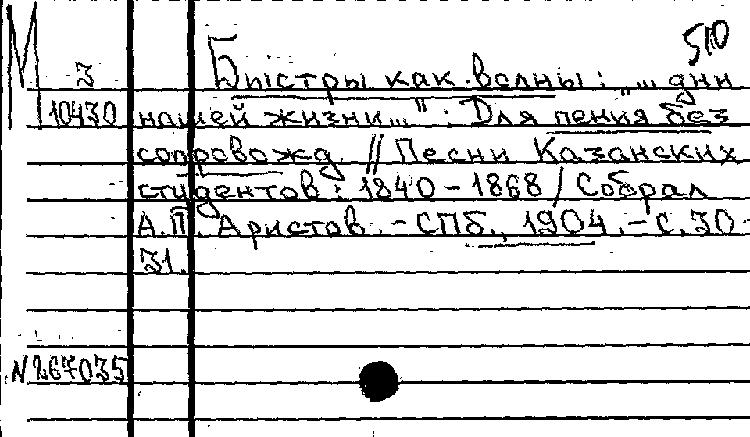 М
510
З
10430
Быстры как волны : „... дни
нашей жизни..." : Для пения без
сопровожд. // Песни Казанских
студентов : 1840 - 1868 / Собрал
А.П. Аристов. - СПб., 1904. - С. 30
31.
N 267035